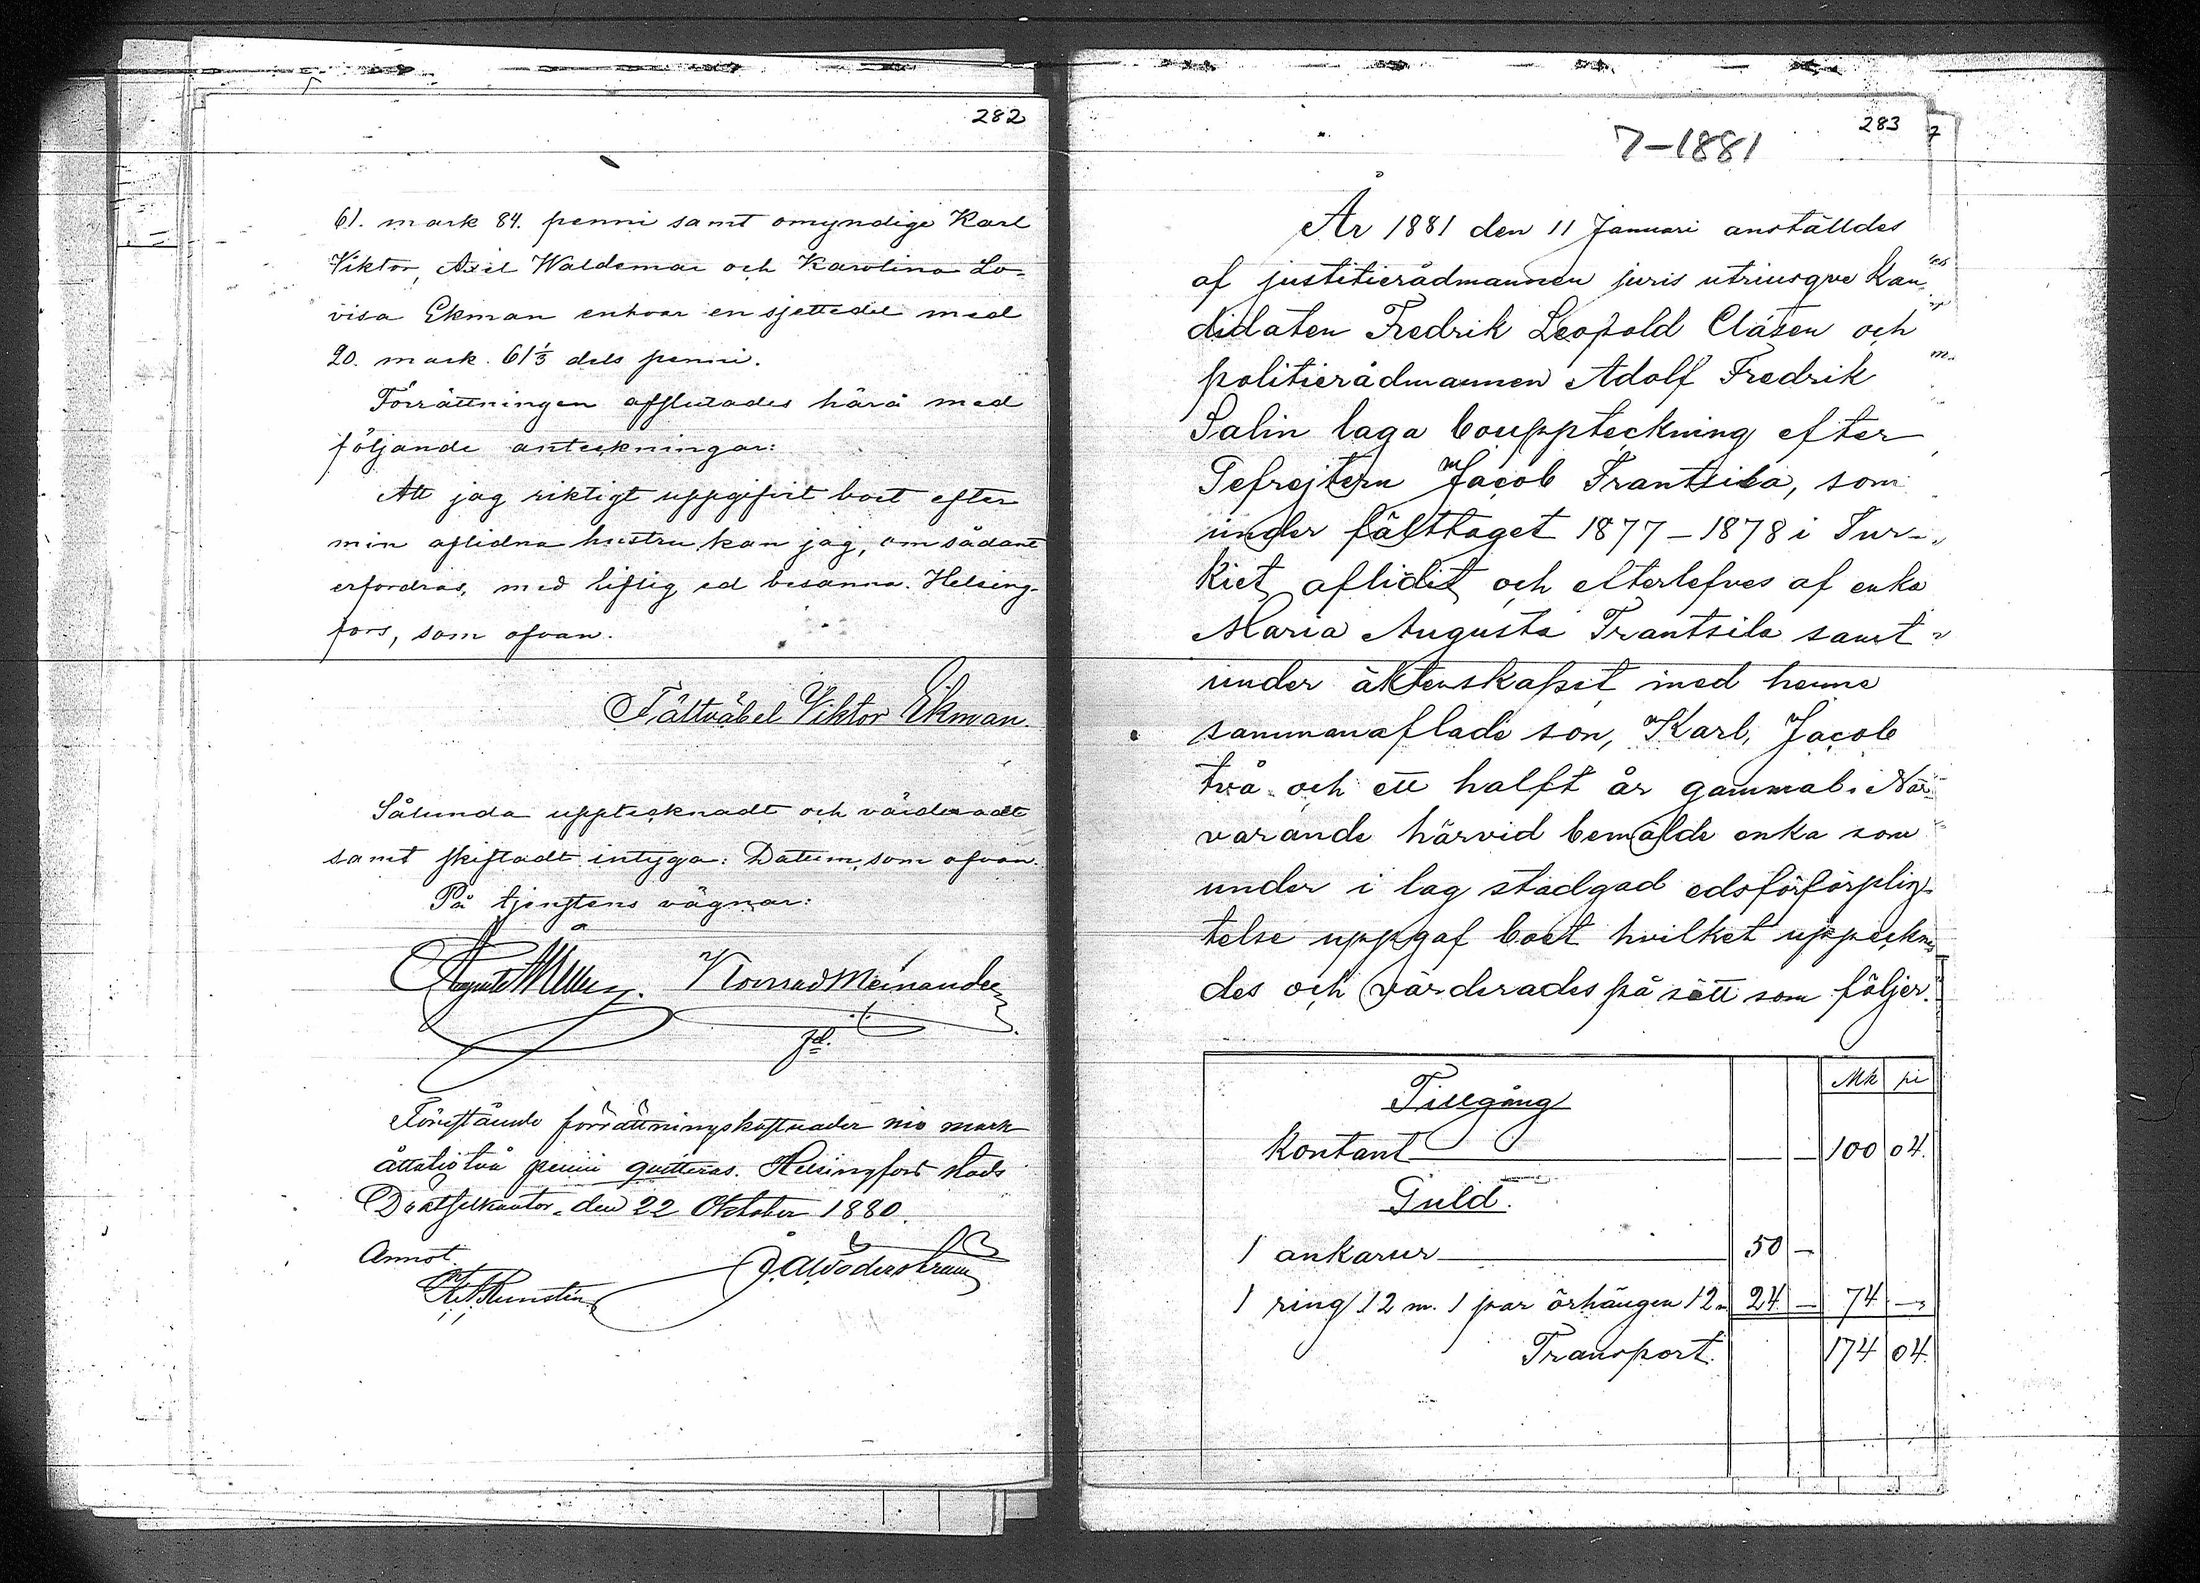 282
61. mark 84. penni samt omyndige Karl
Viktor, Axel Waldemar och Karolina Lo-
visa Ekman enhvar en sjettedel med
20. mark. 61 1/3 dels penni.
Förrättningen afslutades härå med
följande anteckningar:
Att jag riktigt uppgifvit boet efter
min aflidna hustru kan jag, om sådant
erfordras, med liflig ed besanna. Helsing-
fors, som ofvan.
Fältväbel Viktor Ekman.
Sålunda upptecknadt och värderadt
samt skiftadt intyga: Datum, som ofvan.
På tjenstens vägnar:
Konrad Meinander
Förestående förrättningskostnader nio mark
åttatio två penni quitteras. Helsingfors stads
Drätselkontor, den 22 Oktober 1880.
Annot.
283
7
7-1881
År 1881 den 11 Januari anställdes
af justitierådmannen juris utriusqve Kan-
didaten Fredrik Leopold Clásen och
politierådmannen Adolf Fredrik
Salin laga bouppteckning efter
Gefrejtern Jacob Frantsila, som
under fälttaget 1877-1878 i Tur-
kiet aflidit och efterlefves af enka
Maria Augusta Frantsila samt
under äktenskapet med henne
sammanaflade son, Karl, Jacob
två och ett halft år gammal. När-
varande härvid bemälde enka som
under i lag stadgad edsförförplig-
telse uppgaf boet hvilket uppteckna-
des och värderades på sätt som följer.
Mk pi
Tillgång
Kontant 100 04.
Guld.
1 ankarur 50 -
1 ring 12 m. 1 par örhängen 12 m 24 - 74 -
Transport. 174 04.